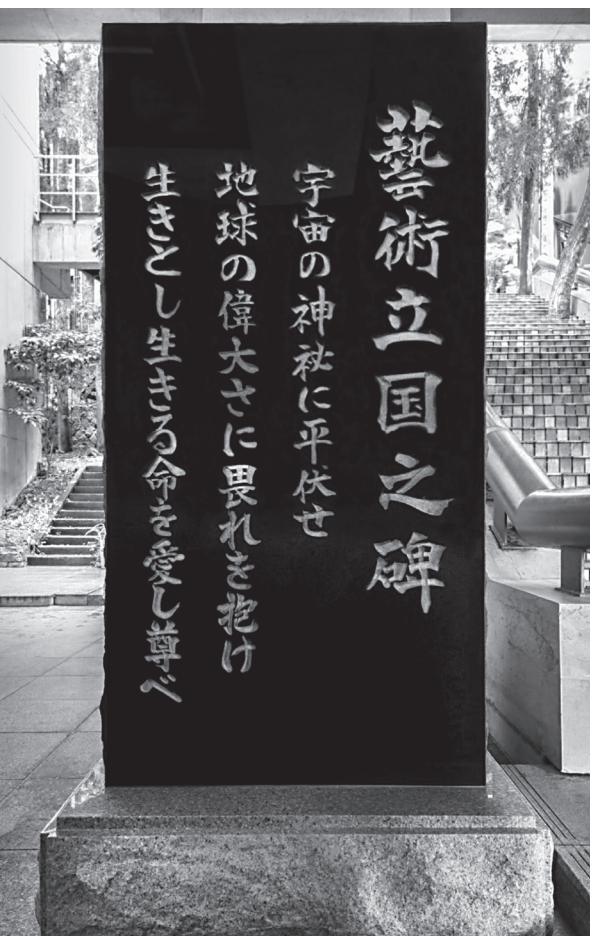 藝術立国之碑
宇宙の神祕に平伏せ
地球の偉大さに畏れを抱け
生きとし生きる命を愛し尊べ